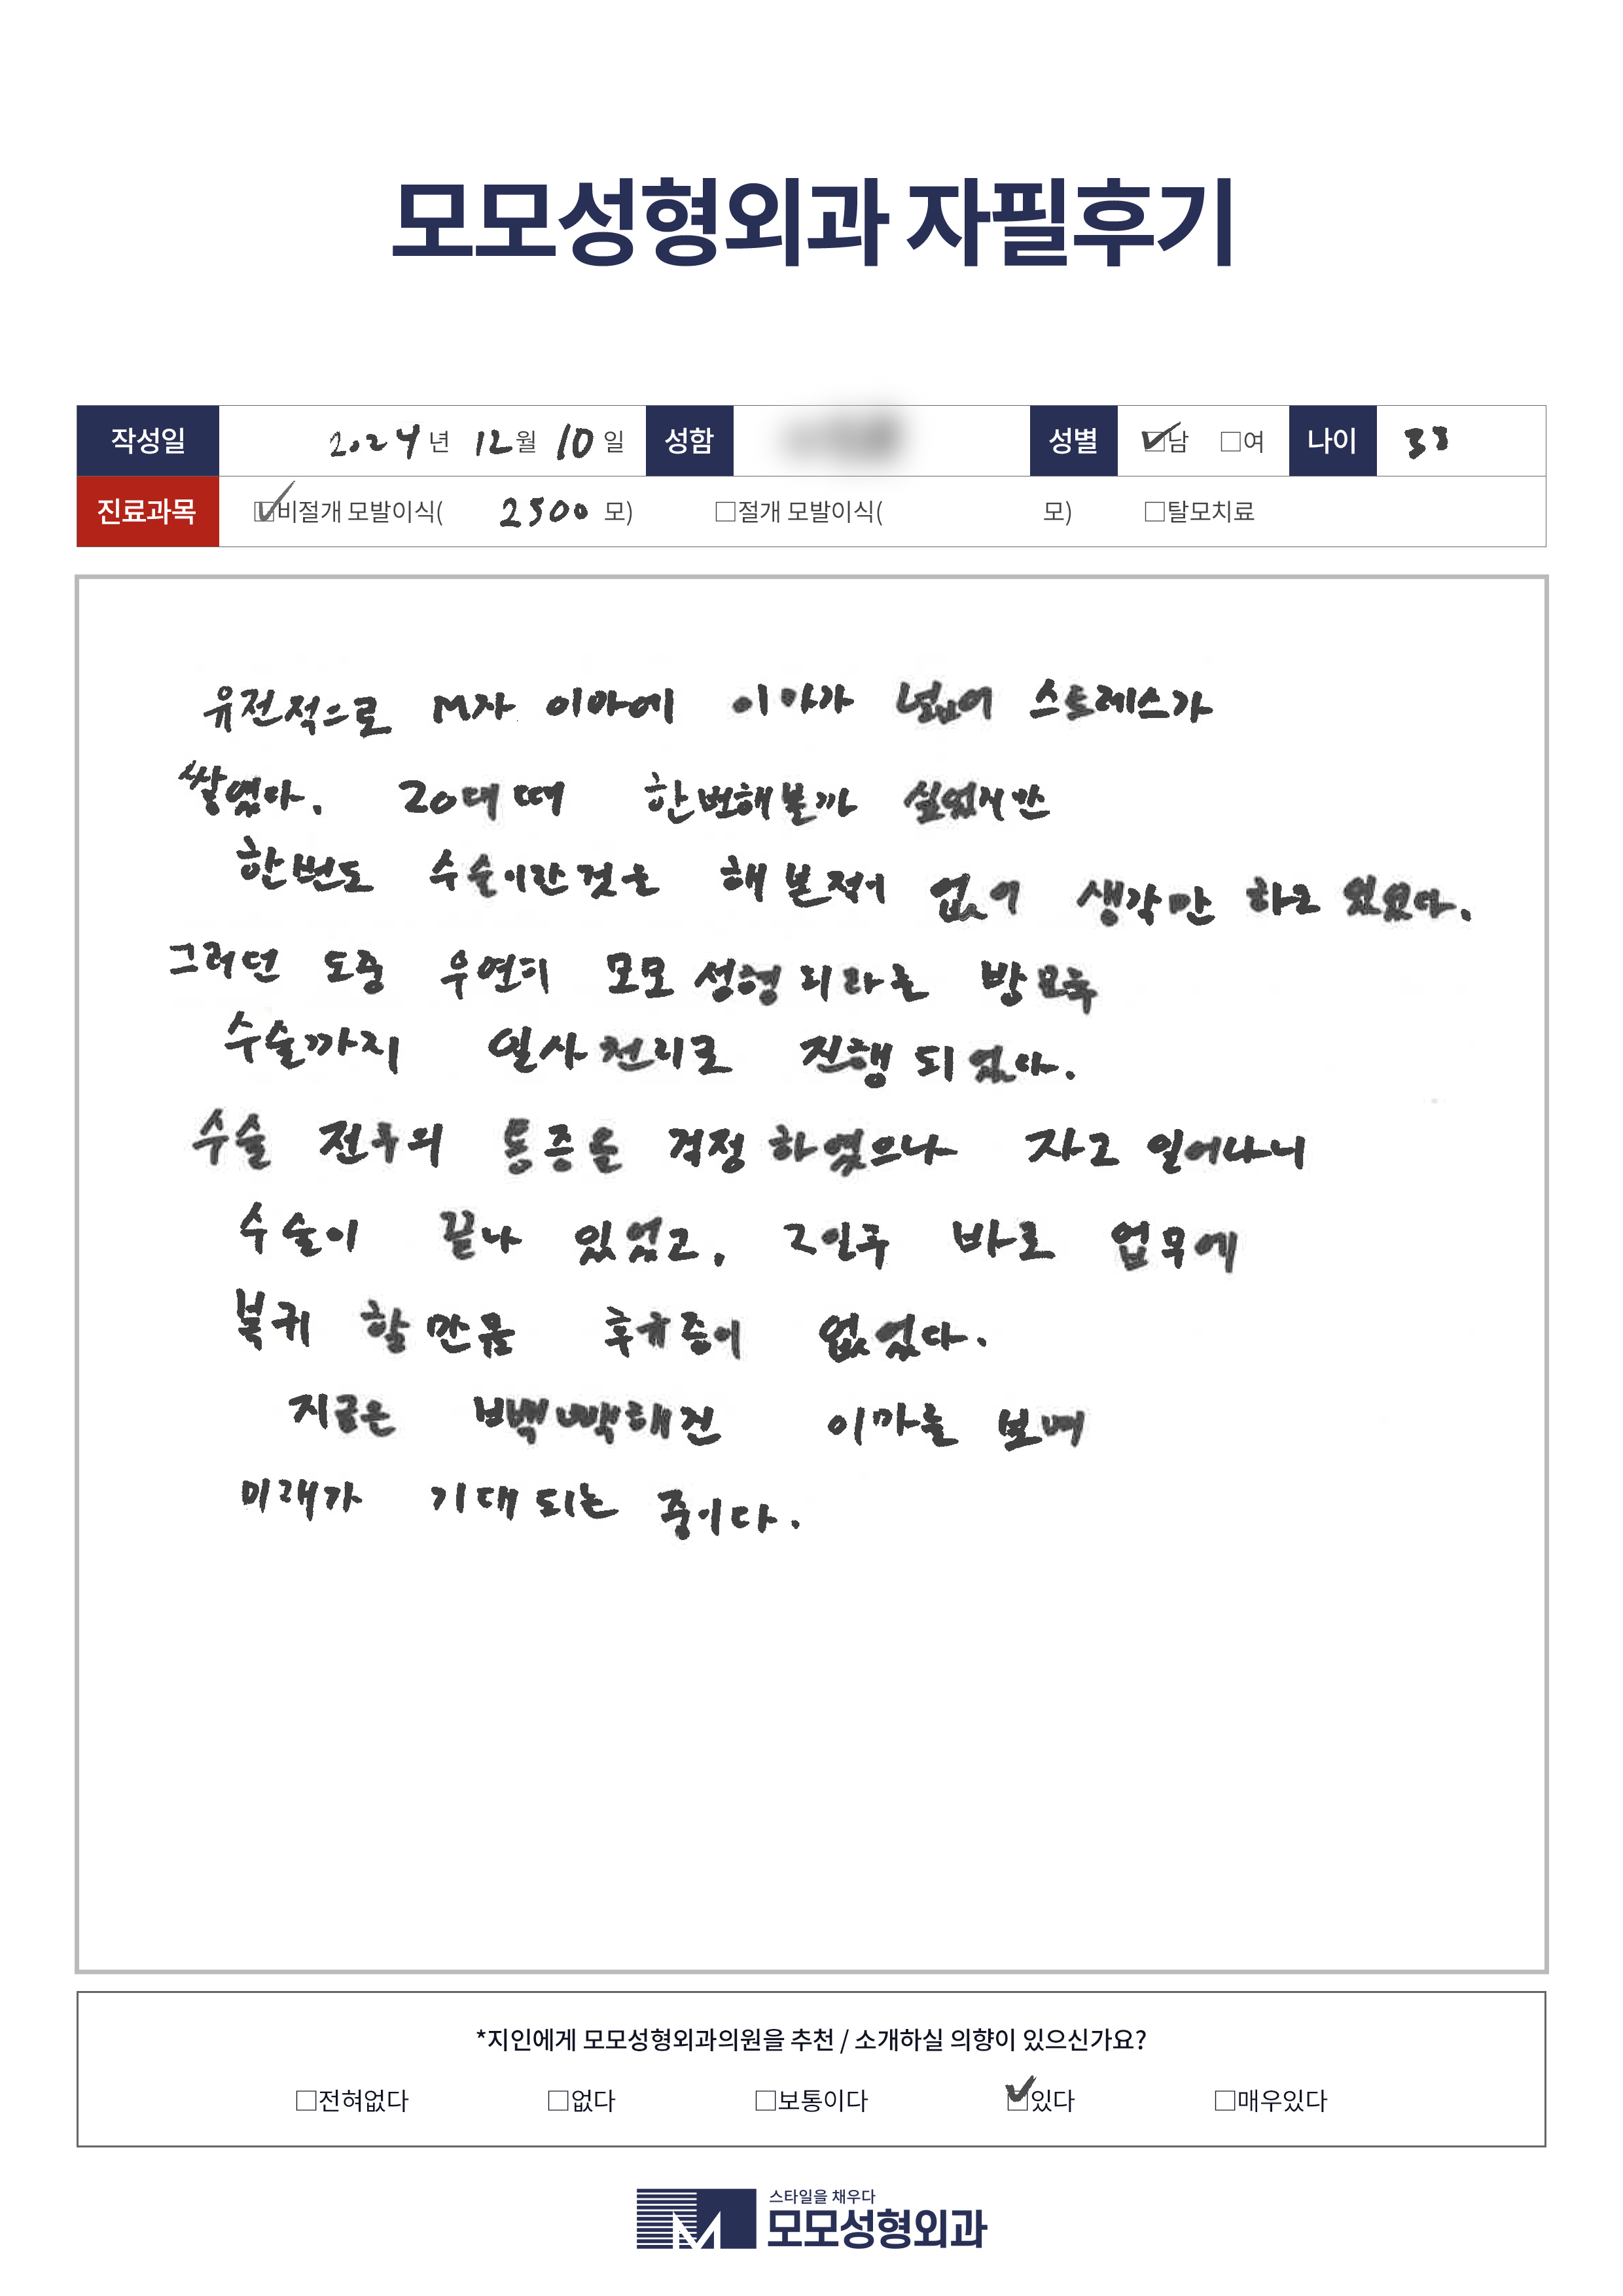 모모성형외과 자필후기
작성일 2024년 12월 10일 성함 성별 ☑남 □여 나이 33
진료과목 ☑비절개 모발이식( 2500 모) □절개 모발이식( 모) □탈모치료
유전적으로 M자 이마에 이마가 넓어 스트레스가
쌓였다. 20대 때 한번해볼까 싶었지만
한번도 수술이란것은 해본적이 없어 생각만 하고 있었다.
그러던 도중 우연히 모모성형외과를 방문후
수술까지 일사천리로 진행되었다.
수술 전후의 통증을 걱정하였으나 자고 일어나니
수술이 끝나 있었고, 2일후 바로 업무에
복귀 할만큼 후유증이 없었다.
지금은 빽빽해진 이마를 보며
미래가 기대되는 중이다.
*지인에게 모모성형외과의원을 추천 / 소개하실 의향이 있으신가요?
□전혀없다 □없다 □보통이다 ☑있다 □매우있다
스타일을 채우다
모모성형외과